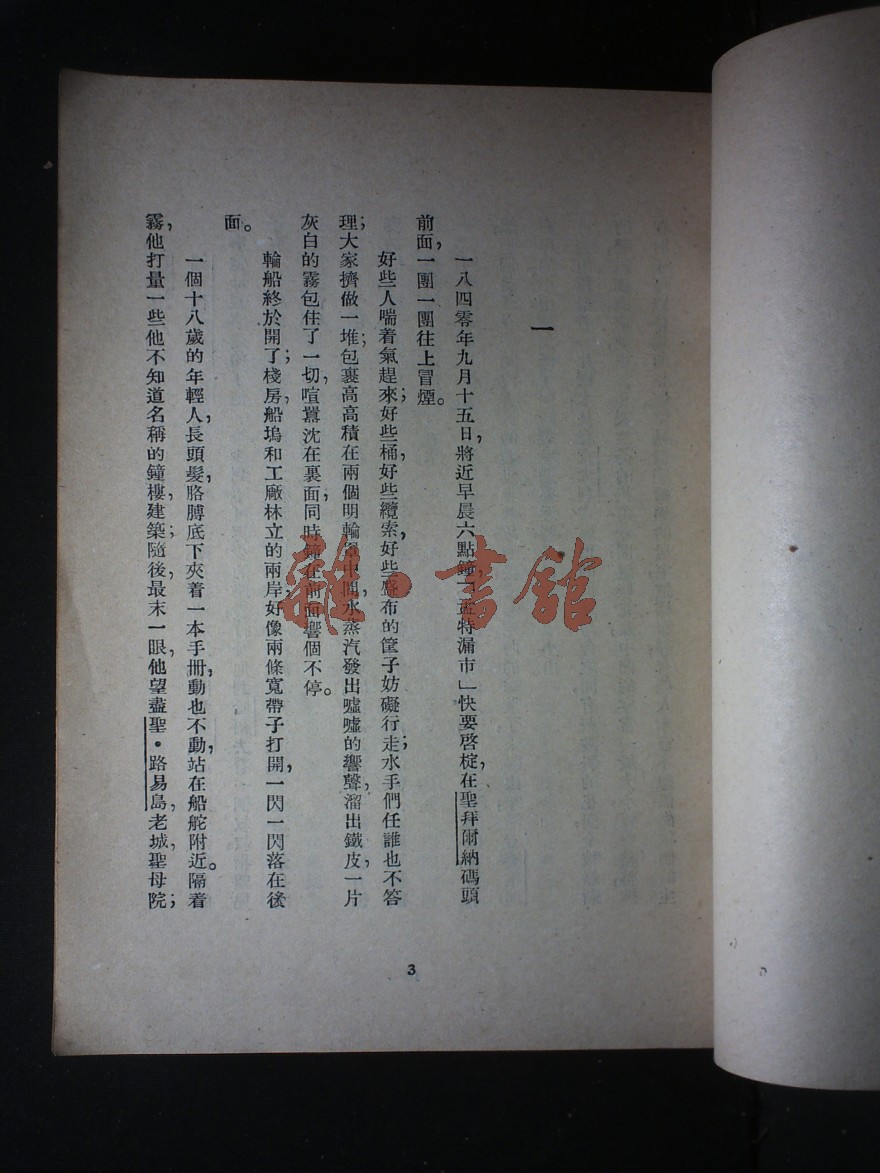 一
一八四零年九月十五日，將近早晨六點鐘，「孟特漏市」快要啓椗，在聖拜爾納碼頭
前面，一團一團往上冒煙。
好些人喘着氣趕來；好些桶，好些纜索，好些盛布的筐子妨礙行走；水手們任誰也不答
理；大家擠做一堆；包裹高高積在兩個明輪中間，水蒸汽發出噓噓的響聲，溜出鐵皮，一片
灰白的霧包住了一切，喧囂沈在裏面，同時鐘在前面響個不停。
輪船終於開了；棧房，船塢和工廠林立的兩岸，好像兩條寬帶子打開，一閃一閃落在後
面。
一個十八歲的年輕人，長頭髮，胳膊底下夾着一本手册，動也不動，站在船舵附近。隔着
霧，他打量一些他不知道名稱的鐘樓，建築；隨後，最末一眼，他望盡聖·路易島，老城，聖母院；
3
雜·書館